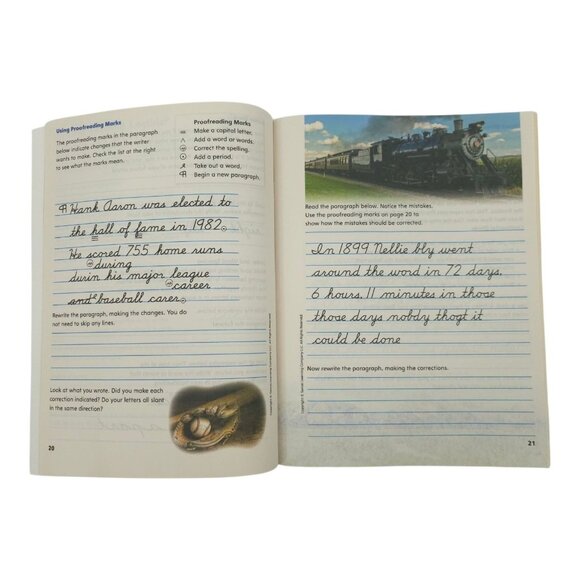 Using Proofreading Marks
The proofreading marks in the paragraph
below indicate changes that the writer
wants to make. Check the list at the right
to see what the marks mean.
Proofreading Marks
Make a capital letter.
Add a word or words.
Correct the spelling.
Add a period.
Take out a word.
¶ Begin a new paragraph.
¶ Hank Aaron was elected to
the hall of fame in 1982
He scored 755 home runs
during
durin his major league
career
and baseball carer
Rewrite the paragraph, making the changes. You do
not need to skip any lines.
Look at what you wrote. Did you make each
correction indicated? Do your letters all slant
in the same direction?
20
Read the paragraph below. Notice the mistakes.
Use the proofreading marks on page 20 to
show how the mistakes should be corrected.
In 1899 Nellie bly went
around the word in 72 days,
6 hours, 11 minutes in those
those days nobdy thogt it
could be done
Now rewrite the paragraph, making the corrections.
21